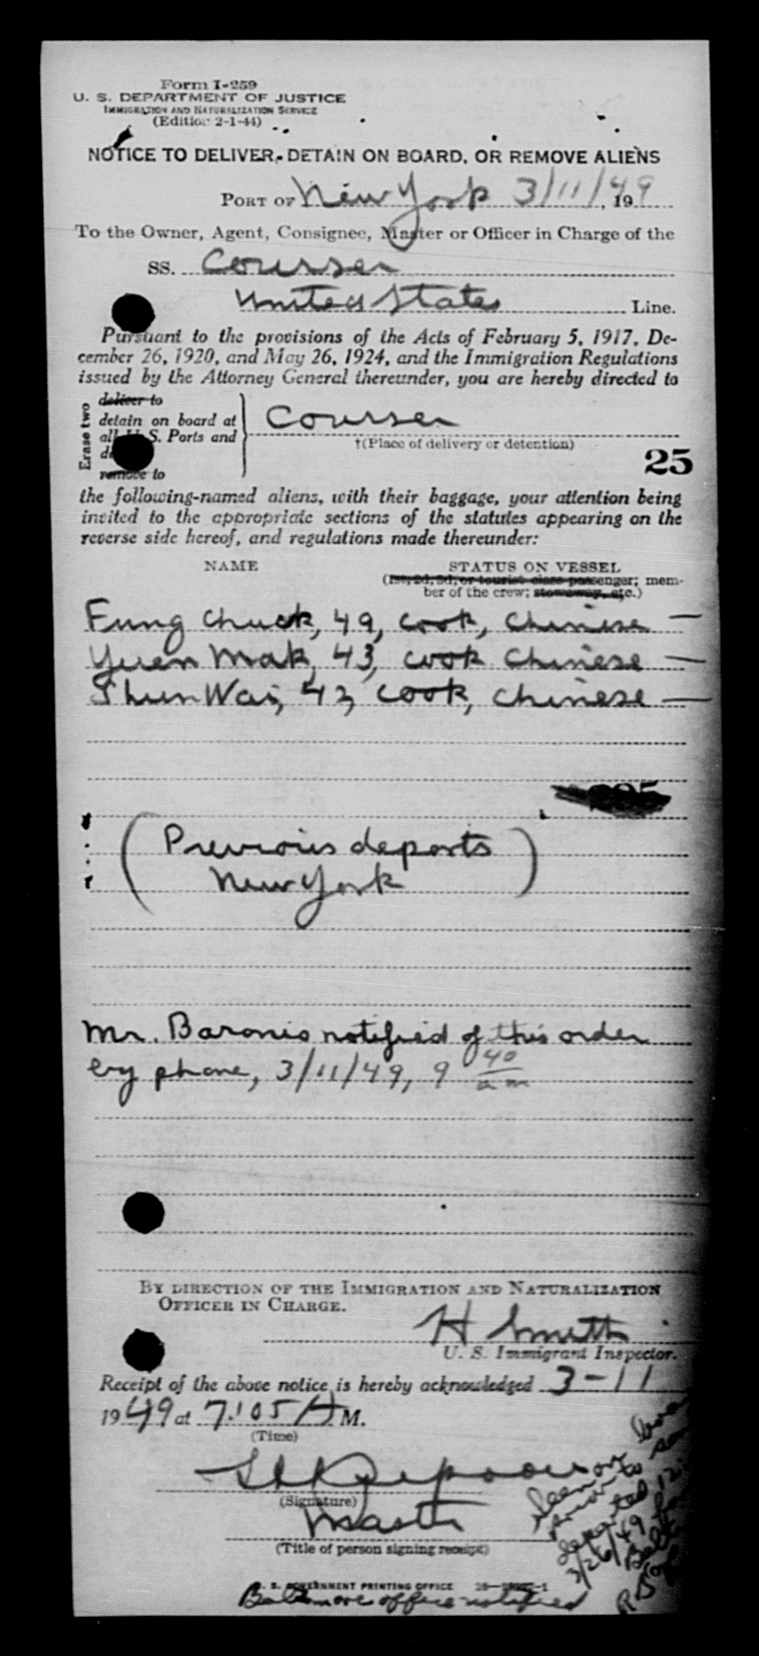 Form I-259
U. S. DEPARTMENT OF JUSTICE
IMMIGRATION AND NATURALIZATION SERVICE
(Edition 2-1-44)
NOTICE TO DELIVER, DETAIN ON BOARD, OR REMOVE ALIENS
PORT OF New York 3/11/49, 19
To the Owner, Agent, Consignee, Master or Officer in Charge of the
SS. Courser
United States Line.
Pursuant to the provisions of the Acts of February 5, 1917, De-
cember 26, 1920, and May 26, 1924, and the Immigration Regulations
issued by the Attorney General thereunder, you are hereby directed to
Erase two
deliver to
detain on board at
all U. S. Ports and
remove to
Courser
†(Place of delivery or detention)
25
the following-named aliens, with their baggage, your attention being
invited to the appropriate sections of the statutes appearing on the
reverse side hereof, and regulations made thereunder:
NAME STATUS ON VESSEL
(1st, 2d, 3d, or tourist class passenger; mem-
ber of the crew; stowaway, etc.)
Fung Chuck, 49, cook, Chinese —
Yuen Mak, 43, cook Chinese —
Shun Wai, 43, cook, Chinese —
(Previous deports
New York)
Mr. Baronis notified of this order
by phone, 3/11/49, 9 40 am
BY DIRECTION OF THE IMMIGRATION AND NATURALIZATION
OFFICER IN CHARGE.
H Smith
U. S. Immigrant Inspector.
Receipt of the above notice is hereby acknowledged 3-11
1949 at 7:05 A M.
(Time)
(Signature)
Master
(Title of person signing receipt)
Seen on
prior to
departed
3/26/49
U. S. GOVERNMENT PRINTING OFFICE
Baltimore office notified